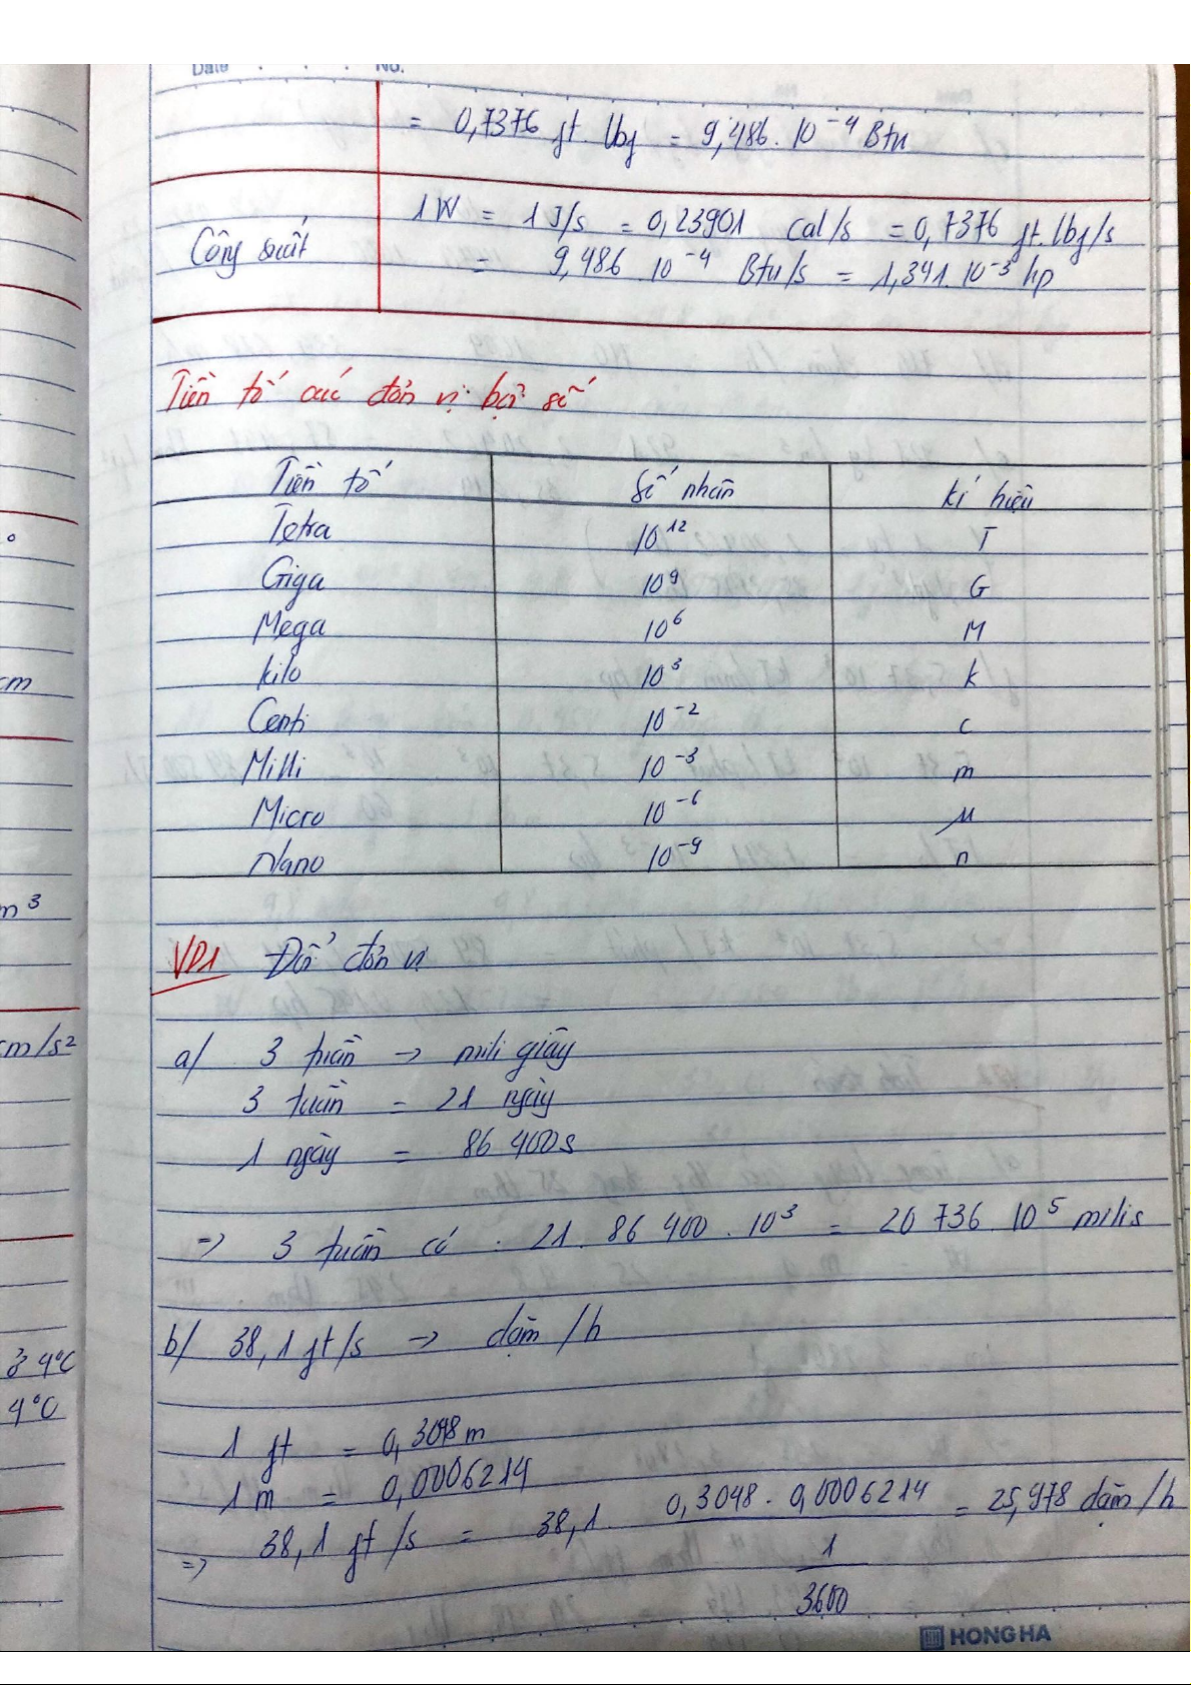 Date . . . No.
= 0,7376 ft. lbf = 9,486. 10⁻⁴ Btu
Công suất
1W = 1 J/s = 0,23901 cal/s = 0,7376 ft.lbf/s
= 9,486 10⁻⁴ Btu/s = 1,341. 10⁻³ hp
Tiền tố các đơn vị bội số
Tiền tố Số nhân Kí hiệu
Tetra 10¹² T
Giga 10⁹ G
Mega 10⁶ M
kilo 10³ k
Centi 10⁻² c
Milli 10⁻³ m
Micro 10⁻⁶ µ
Nano 10⁻⁹ n
VD1 Đổi đơn vị
a/ 3 tuần -> mili giây
3 tuần = 21 ngày
1 ngày = 86 400s
=> 3 tuần có . 21. 86 400 . 10³ = 20 736 10⁵ milis
b/ 38,1 ft/s -> dặm/h
1 ft = 0,3048 m
1 m = 0,0006214
=> 38,1 ft/s = 38,1. 0,3048 . 0,0006214 = 25,978 dặm/h
1
3600
cm
m³
cm/s²
4°C
4°C
HONG HA